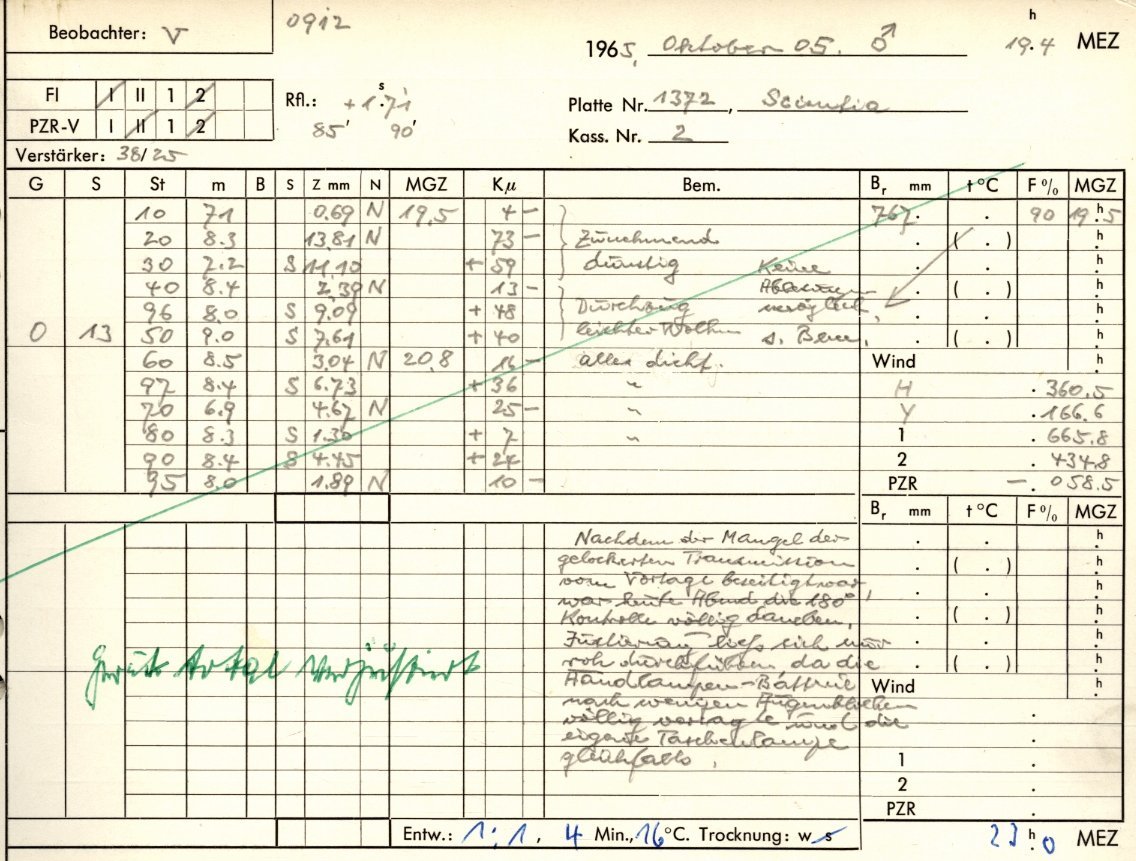 Beobachter: V
0912
1965, Oktober 05. ♂ 19.4 h MEZ
FI I II 1 2
PZR-V I II 1 2
Rfl.: + 1.s71
85' 90'
Platte Nr. 1372, Scientia
Kass. Nr. 2
Verstärker: 38/25
G S St m B S Z mm N MGZ Kμ Bem. Br mm t°C F% MGZ
10 71 0.69 N 19.5 4 - 767. . 90 19.h5
20 8.3 13.81 N 73 - Zunehmend . ( . ) h.
30 7.2 S 11.10 + 59 dunstig Keine . . h.
40 8.4 2.39 N 13 - Ablesungen . ( . ) h.
96 8.0 S 9.09 + 48 Durchzug möglich, . . h.
0 13 50 9.0 S 7.61 + 40 leichter Wolken s. Bem. . ( . ) h.
60 8.5 3.04 N 20.8 16 - alles dicht. Wind h.
97 8.4 S 6.73 + 36 " H . 360.5
70 6.9 4.67 N 25 - " Y . 166.6
80 8.3 S 1.30 + 7 " 1 . 665.8
90 8.4 S 4.45 + 24 2 . 434.8
95 8.0 1.89 N 10 - PZR - . 058.5
Br mm t°C F% MGZ
Nachdem der Mangel der
gelockerten Transmission
vom Vortage beseitigt war,
war heute Abend die 180°
Kontrolle völlig daneben,
Justierung liess sich nur
roh durchführen da die
Handlampen-Battrie
nach wenigen Augenblicken
völlig versagte und die
eigene Taschenlampe
gleichfalls.
Gerät total verjustiert
Wind
1
2
PZR
Entw.: 1:1, 4 Min., 16°C. Trocknung: w s
23 h.0 MEZ